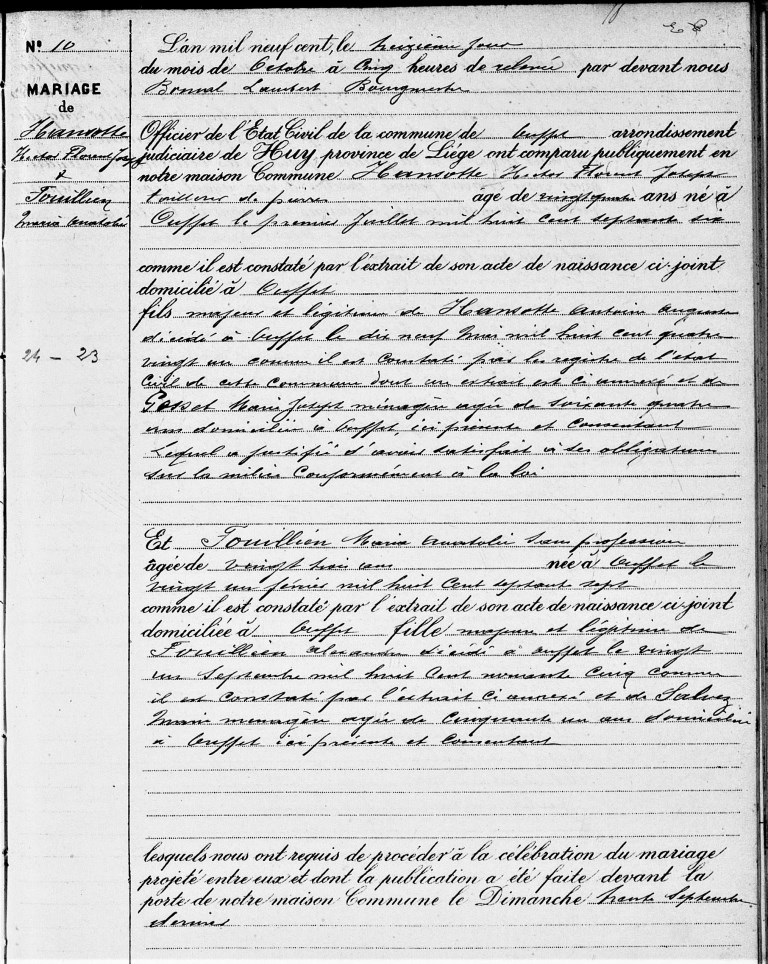 Nº 10
MARIAGE
de
Hansotte
Hector Florent Joseph
&
Fouillien
Maria Anatolie
24 - 23
L'an mil neuf cent, le treizième jour
du mois de Octobre à Cinq heures de relevée par devant nous
Bonmal Lambert Bourgmestre
Officier de l'Etat Civil de la commune de Ouffet arrondissement
judiciaire de Huy province de Liége ont comparu publiquement en
notre maison Commune Hansotte Hector Florent Joseph
tailleur de pierres âge de vingt quatre ans né à
Ouffet le premier Juillet mil huit cent septante six
comme il est constaté par l'extrait de son acte de naissance ci-joint
domicilié à Ouffet
fils majeur et légitime de Hansotte Antoine Auguste
décédé à Ouffet le dix neuf Mai mil huit cent quatre
vingt un comme il est Constaté par les registre de l'état
Civil de cette Commune dont un extrait est ci annexé et de
Marie Joseph ménagère agée de soixante quatre
ans domiciliée à Ouffet, ici présente et consentant
Lequel a justifié d'avoir satisfait à ses obligations
sur la milice Conformément à la loi
Et Fouillien Maria Anatolie sans profession
âgée de vingt trois ans née à Ouffet le
vingt un février mil huit Cent septante sept
comme il est constaté par l'extrait de son acte de naissance ci-joint
domiciliée à Ouffet fille majeure et légitime de
Fouillien Alexandre décédé à Ouffet le vingt
un Septembre mil huit Cent nonante Cinq comme
il est constaté par l'extrait Ci annexé et de Salvez
Marie menagère agée de Cinquante un ans domiciliée
à Ouffet ici présente et consentant
lesquels nous ont requis de procéder à la célébration du mariage
projeté entre eux et dont la publication a été faite devant la
porte de notre maison Commune le Dimanche trente Septembre
dernier